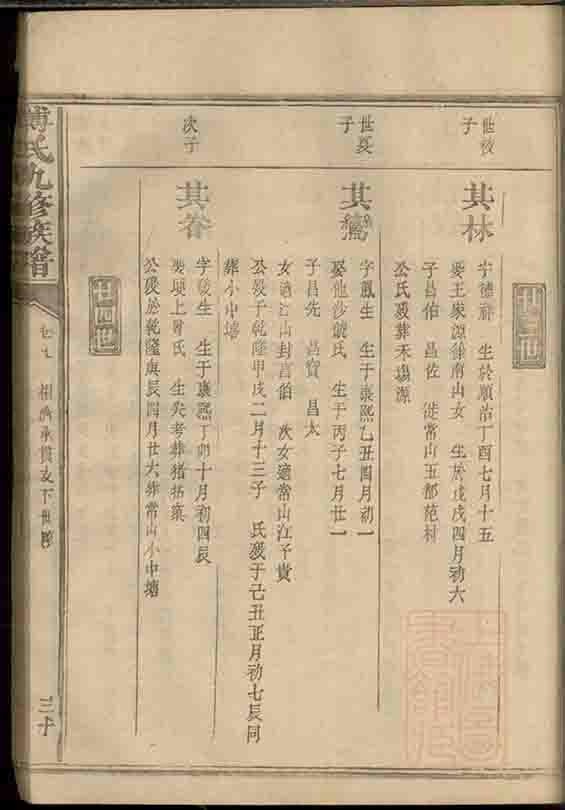 廿三世
世
子
其林
字德 生於順治丁酉七月十五
娶王家源徐南山女 生於戊戌四月初六
子昌伯 昌佐 徙常山五都范村
公氏歿葬禾場源
世
子
其鸞
字鳳生 生于康熙乙丑四月初一
娶他沙 氏 生于丙子七月廿一
子昌先 昌寶 昌太
女適江山封 伯 次女適常山江予貴
公歿于乾隆甲戌二月十三子 氏歿于己丑正月初七辰同
葬小中塘
次子
其
字 生 生于康熙丁卯十月初四辰
娶 上 氏 生失考葬
公歿於乾隆庚辰四月廿六葬常山小中塘
廿四世
傅氏九修族譜
卷 下世
三十
上海圖書館藏